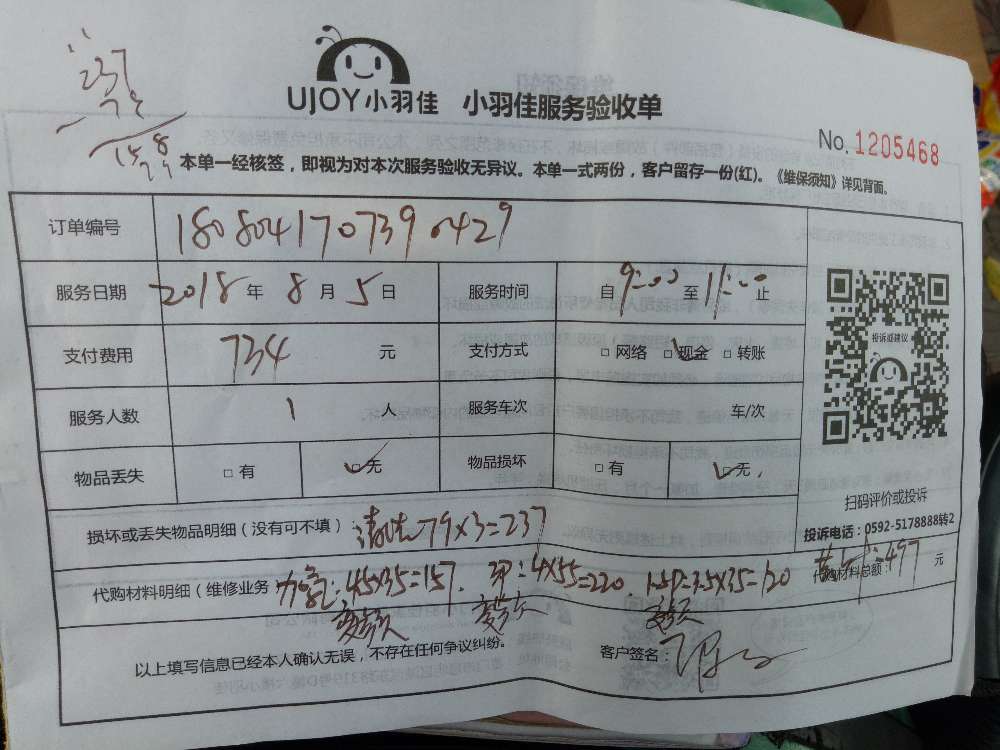 237
UJOY小羽佳 小羽佳服务验收单
No. 1205468
本单一经核签，即视为对本次服务验收无异议。本单一式两份，客户留存一份(红)。《维保须知》详见背面。
订单编号 1808041707390429
服务日期 2018年8月5日 服务时间 自9:00至11:00止
支付费用 734元 支付方式 □网络 □现金 □转账
服务人数 1人 服务车次 车/次
物品丢失 □有 □无 物品损坏 □有 □无
投诉或建议
扫码评价或投诉
投诉电话：0592-5178888转2
损坏或丢失物品明细（没有可不填）：清洗79×3=237
代购材料明细（维修业务 加氟：45×35=157. 4×55=220 1.5P=3.5×35=120 代购材料总额：497元
以上填写信息已经本人确认无误，不存在任何争议纠纷。 客户签名：